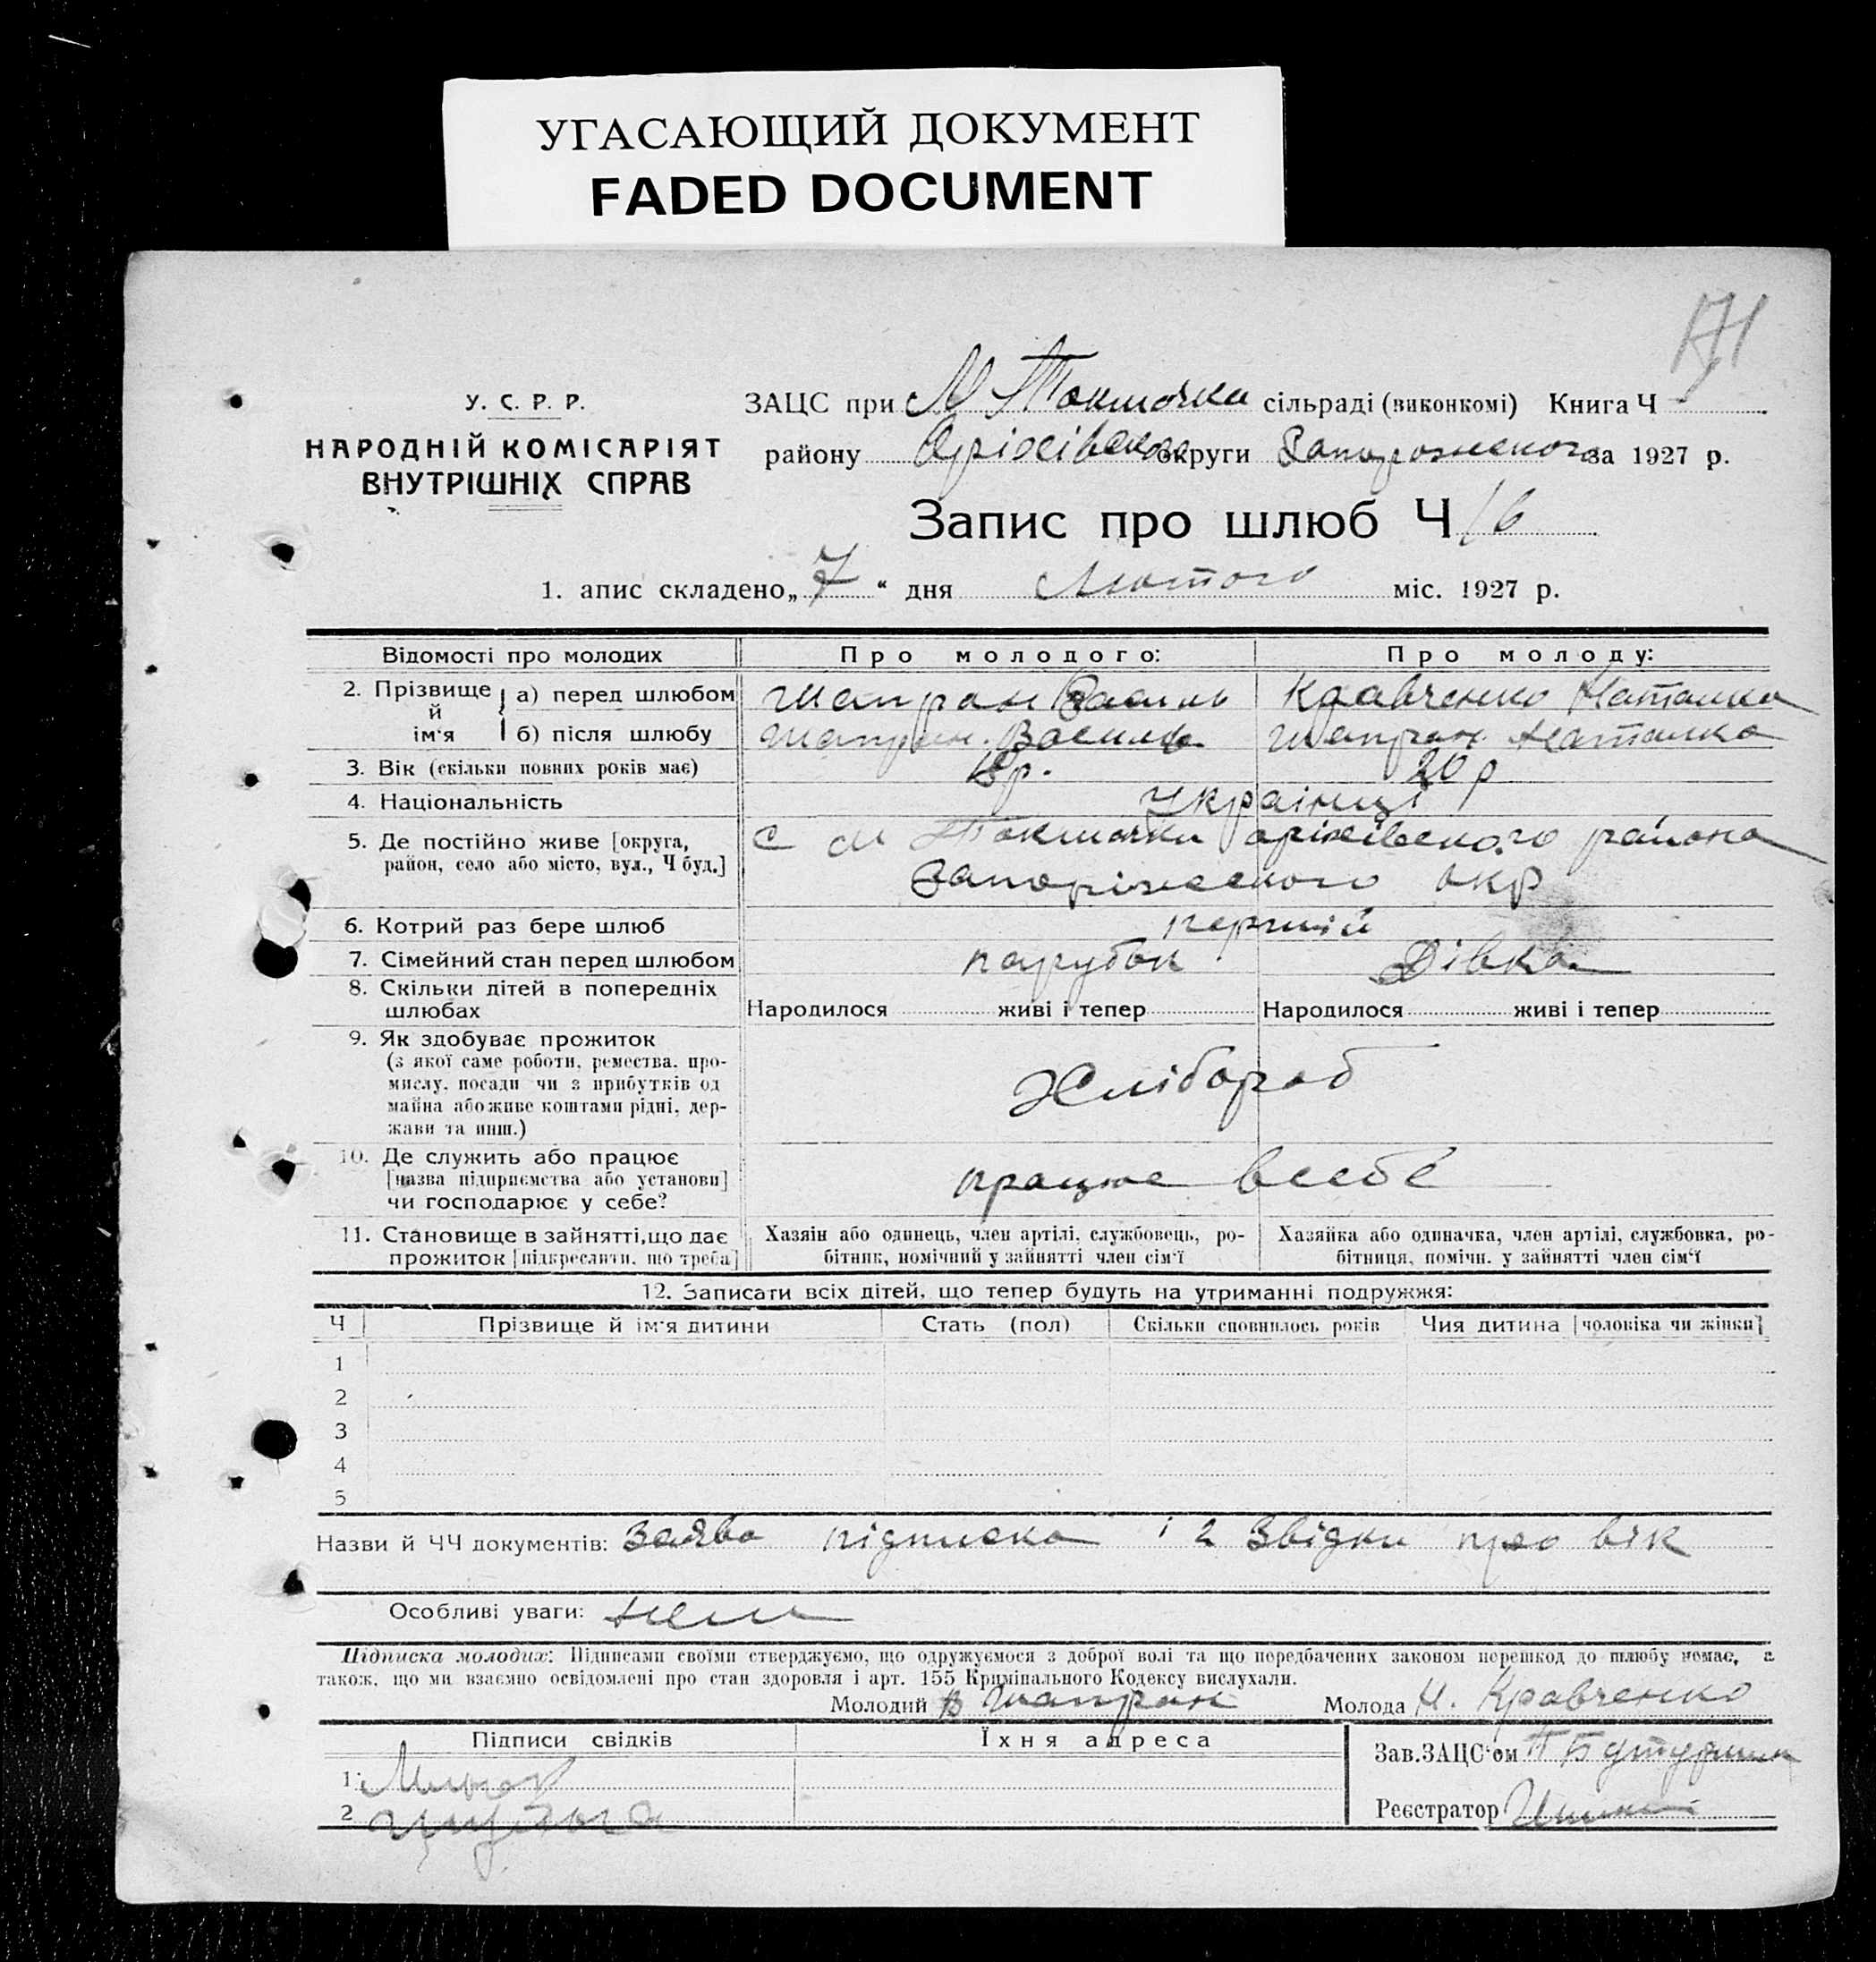 УГАСАЮЩИЙ ДОКУМЕНТ
FADED DOCUMENT
171
У. С. Р. Р.
НАРОДНІЙ КОМІСАРІЯТ
ВНУТРІШНІХ СПРАВ
ЗАЦС при М Токмачка сільраді (виконкомі) Книга Ч
району Оріхівського округи Запорожского за 1927 р.
Запис про шлюб Ч 16
1. апис складено „7“ дня Лютого міс. 1927 р.
Відомості про молодих Про молодого: Про молоду:
2. Прізвище й ім'я а) перед шлюбом Шапран Василь Кравченко Наталка
б) після шлюбу Шапран Василь Шапран Наталка
3. Вік (скільки повних років має) 18р. 20 р
4. Національність Українці
5. Де постійно живе [округа, район, село або місто, вул., Ч буд.] С М Токмачки оріхівського района
Запоріжського окр
6. Котрий раз бере шлюб перший
7. Сімейний стан перед шлюбом парубок Дівка
8. Скільки дітей в попередніх шлюбах Народилося живі і тепер Народилося живі і тепер
9. Як здобуває прожиток
(з якої саме роботи, ремества, про-
мислу, посади чи з прибутків од
майна або живе коштами рідні, дер-
жави та инш.) Хлібороб
10. Де служить або працює
[назва підприємства або установи]
чи господарює у себе? працює всебе
11. Становище в зайнятті, що дає
прожиток [підкреслити, що треба]
Хазяін або одинець, член артілі, службовець, ро-
бітник, помічний у зайнятті член сім‘ї
Хазяйка або одиначка, член артілі, службовка, ро-
бітниця, помічн. у зайнятті член сім‘ї
12. Записати всіх дітей, що тепер будуть на утриманні подружжя:
Ч Прізвище й ім'я дитини Стать (пол) Скільки сповнилось років Чия дитина [чоловіка чи жінки]
1
2
3
4
5
Назви й ЧЧ документів: Заява підписка і 2 Звідки про вік
Особливі уваги: нема
Підписка молодих: Підписами своїми стверджуємо, що одружуємося з доброї волі та що передбачених законом перешкод до шлюбу немає, а
також, що ми взаємно освідомлені про стан здоровля і арт. 155 Кримінального Кодексу вислухали.
Молодий В Шапран Молода Н. Кравченко
Підписи свідків Їхня адреса
Зав.ЗАЦС‘ом
1
2
Реєстратор